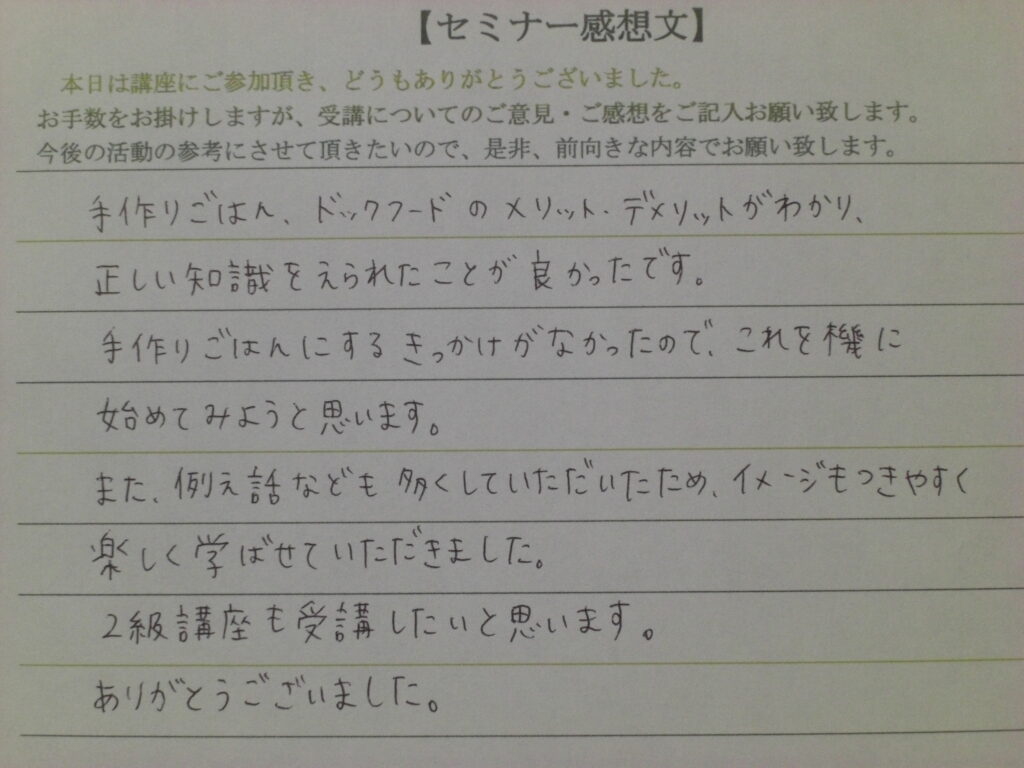 【セミナー感想文】
本日は講座にご参加頂き、どうもありがとうございました。
お手数をお掛けしますが、受講についてのご意見・ご感想をご記入お願い致します。
今後の活動の参考にさせて頂きたいので、是非、前向きな内容でお願い致します。
手作りごはん、ドックフードのメリット・デメリットがわかり、
正しい知識をえられたことが良かったです。
手作りごはんにするきっかけがなかったので、これを機に
始めてみようと思います。
また、例え話なども多くしていただいたため、イメージもつきやすく
楽しく学ばせていただきました。
2級講座も受講したいと思います。
ありがとうございました。